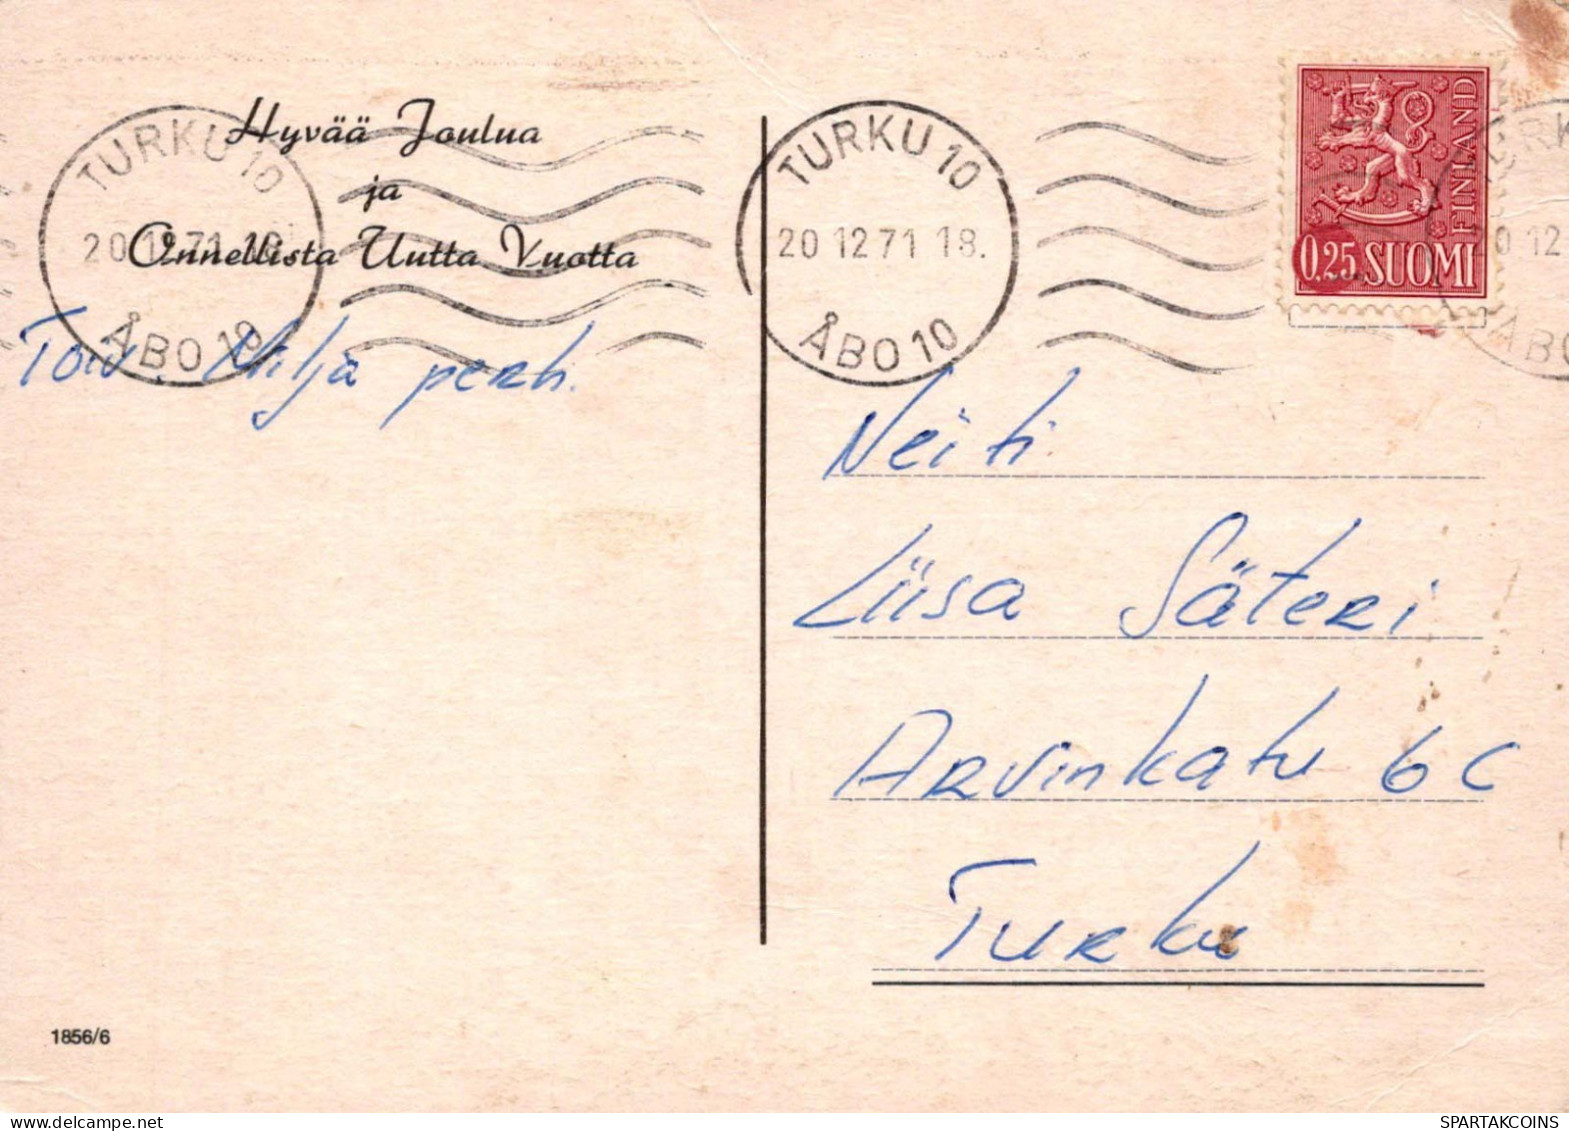 Hyvää Joulua
ja
Onnellista Uutta Vuotta
TURKU 10
20 12 71 18.
ÅBO 10
TURKU 10
20 12 71 18.
ÅBO 10
FINLAND
0,25 SUOMI
URK
0 12
ÅBO
Toiv. Milja perh.
Neiti
Liisa Säteri
Arvinkatu 6 C
Turku
1856/6
SPARTAKCOINS